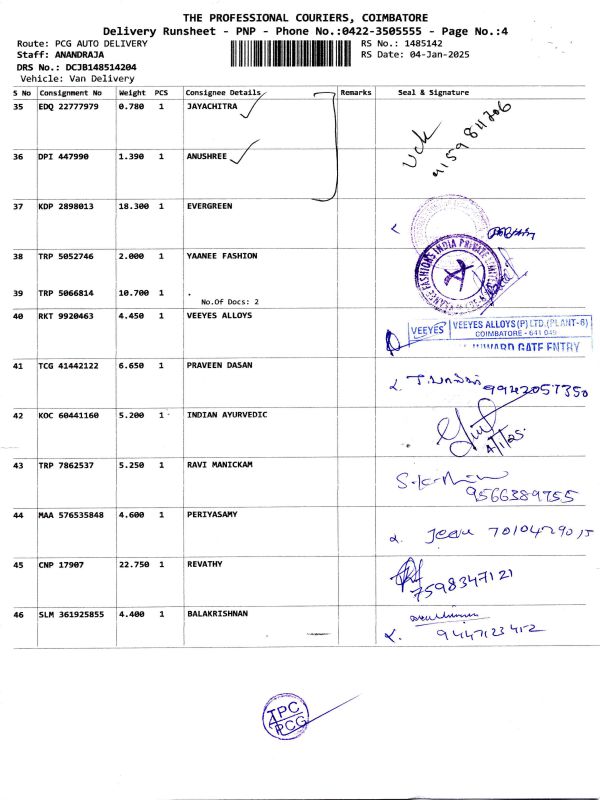 THE PROFESSIONAL COURIERS, COIMBATORE
Delivery Runsheet - PNP - Phone No.:0422-3505555 - Page No.:4
Route: PCG AUTO DELIVERY
RS No.: 1485142
Staff: ANANDRAJA
RS Date: 04-Jan-2025
DRS No.: DCJB148514204
Vehicle: Van Delivery
S No Consignment No Weight PCS Consignee Details Remarks Seal & Signature
35 EDQ 22777979 0.780 1 JAYACHITRA
36 DPI 447990 1.390 1 ANUSHREE
37 KDP 2898013 18.300 1 EVERGREEN
38 TRP 5052746 2.000 1 YAANEE FASHION
39 TRP 5066814 10.700 1 .
No.Of Docs: 2
40 RKT 9920463 4.450 1 VEEYES ALLOYS
VEEYES VEEYES ALLOYS (P) LTD. (PLANT-8)
COIMBATORE - 641 049
INWARD GATE ENTRY
41 TCG 41442122 6.650 1 PRAVEEN DASAN
9942057350
42 KOC 60441160 5.200 1 INDIAN AYURVEDIC
4/1/25
43 TRP 7862537 5.250 1 RAVI MANICKAM
9566389755
44 MAA 576535848 4.600 1 PERIYASAMY
45 CNP 17907 22.750 1 REVATHY
7598347121
46 SLM 361925855 4.400 1 BALAKRISHNAN
9447123412
TPC
PCG